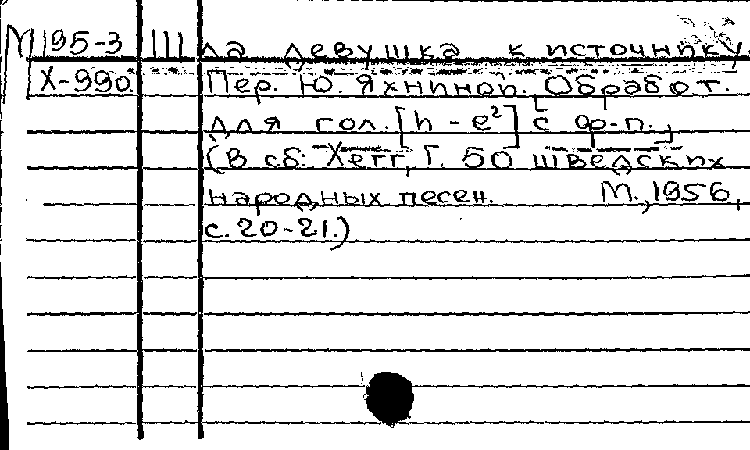 М195-3 III ла девушка к источнику
Х-990. Пер. Ю. Яхниной. Обработ.
для гол. [h - e²] с ф-п.,
(В сб: Хегг, Г. 50 шведских
народных песен. М., 1956,
с. 20-21.)